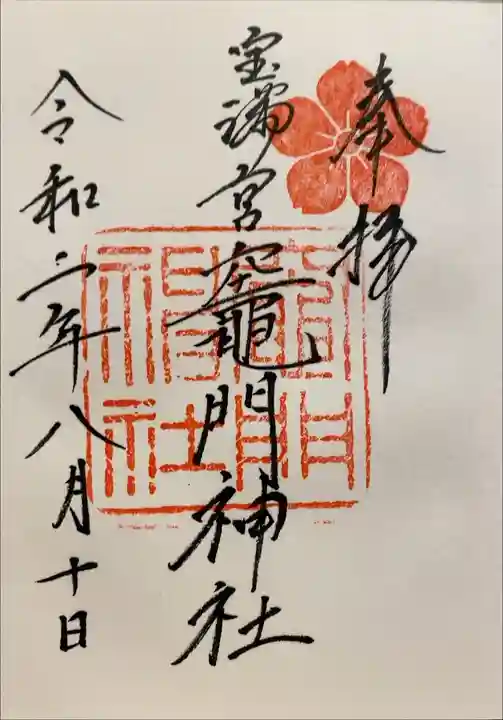 奉拝
宝満宮竈門神社
令和二年八月十日
竈門
神社